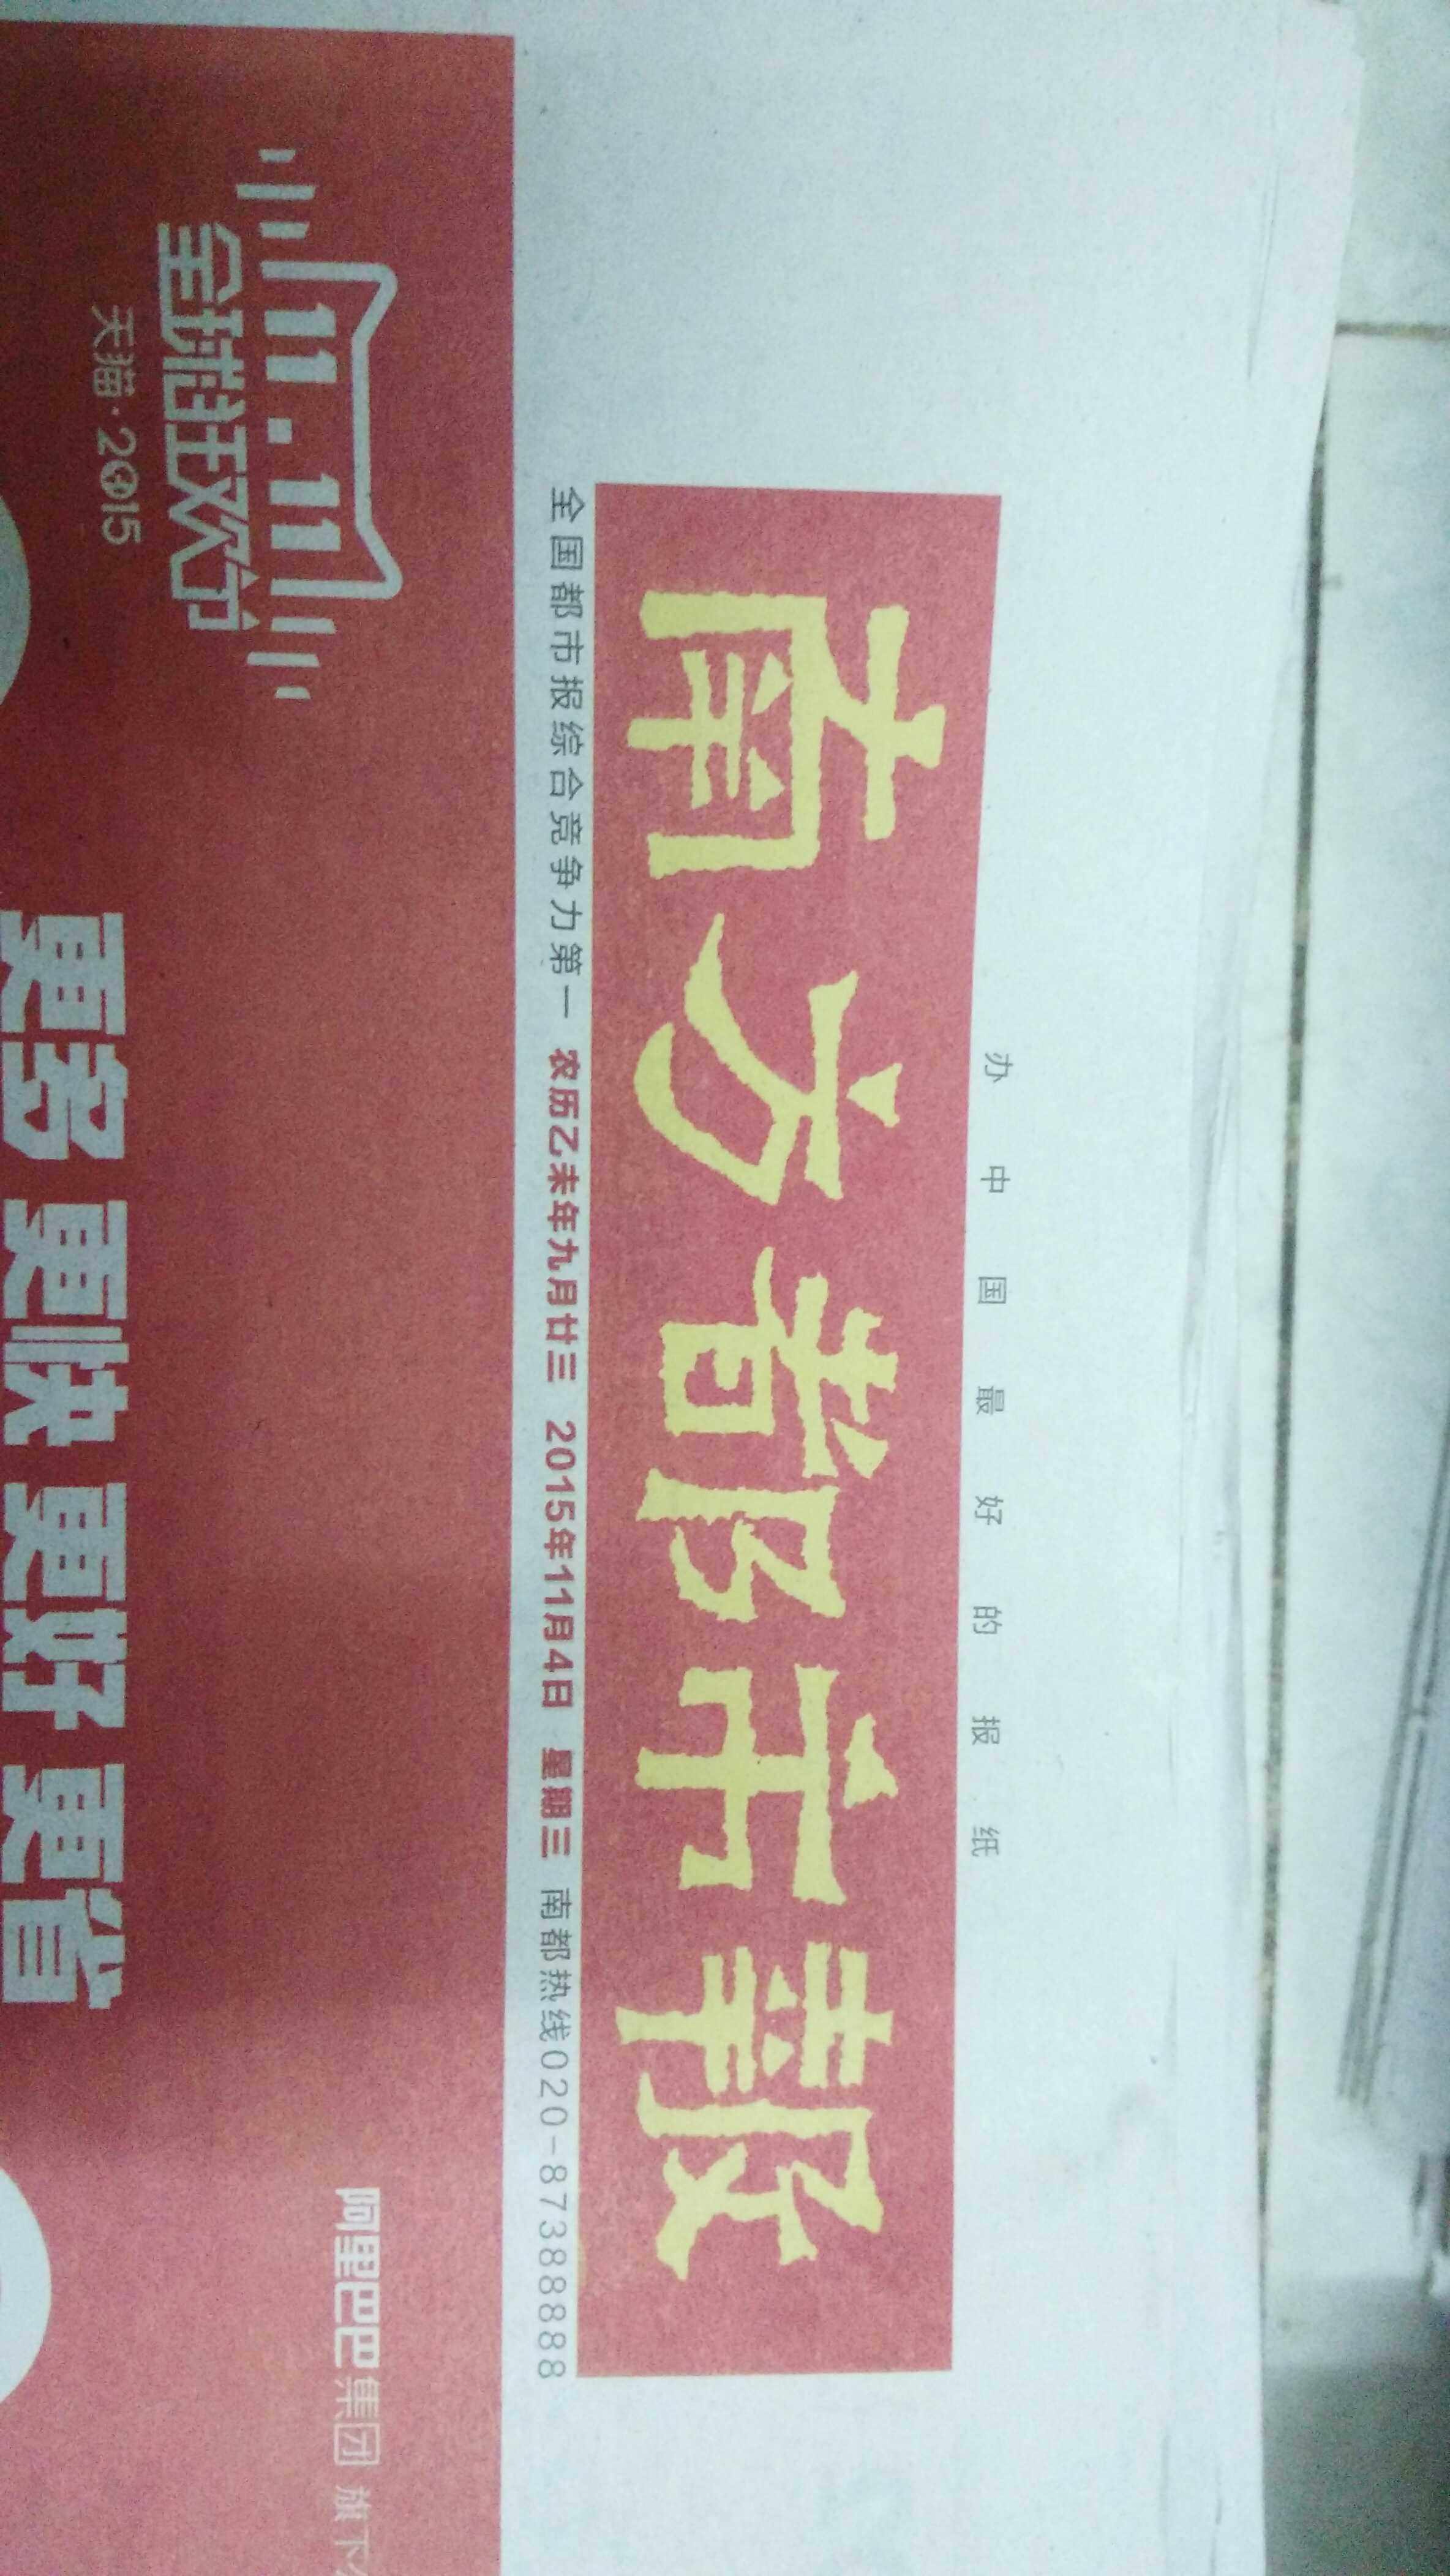 办中国最好的报纸
南方都市报
全国都市报综合竞争力第一 农历乙未年九月廿三 2015年11月4日 星期三 南都热线020-87388888
11.11
全球狂欢节
天猫·2015
阿里巴巴集团 旗下
更多 更快 更好 更省